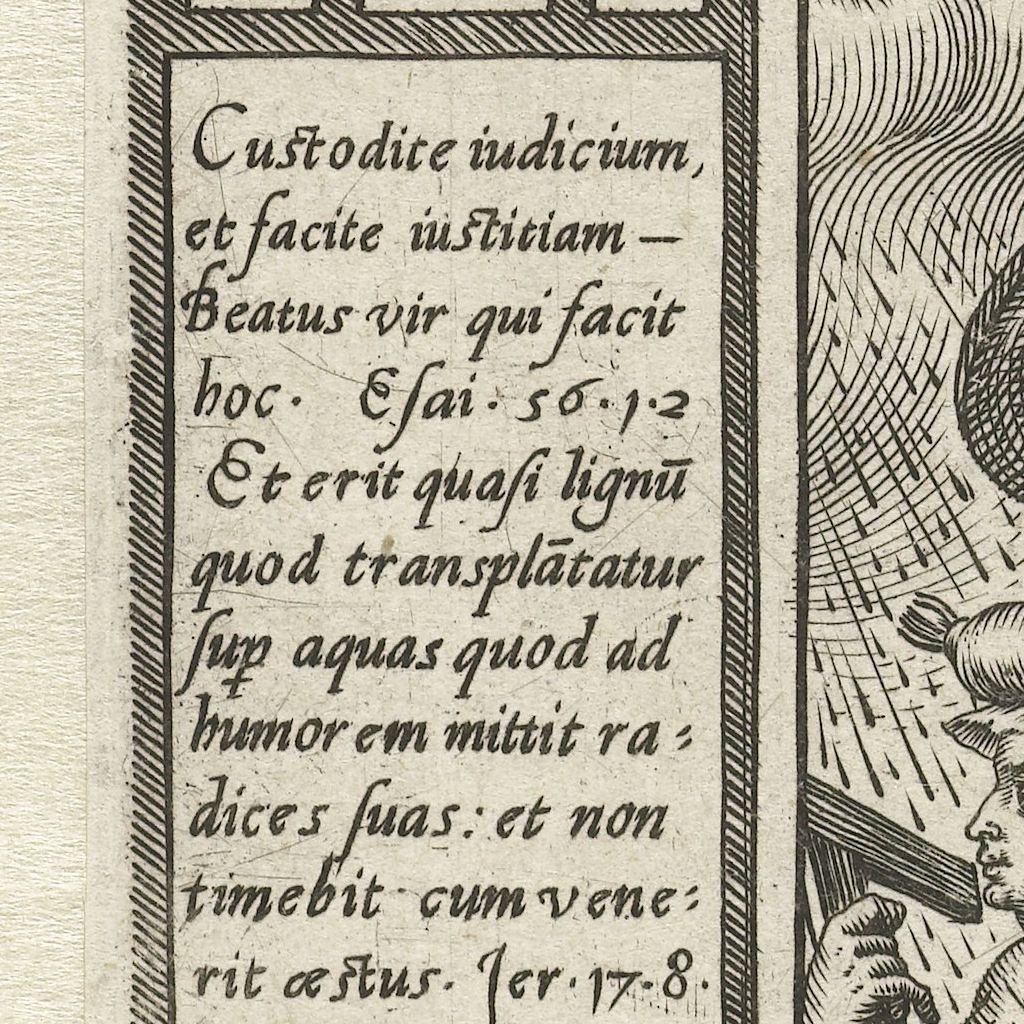 Custodite iudicium,
et facite iustitiam —
Beatus vir qui facit
hoc. Esai. 56.1.2
Et erit quasi lignū
quod transplātatur
suꝑ aquas quod ad
humorem mittit ra:
dices suas: et non
timebit cum vene:
rit æstus. Jer. 17.8.